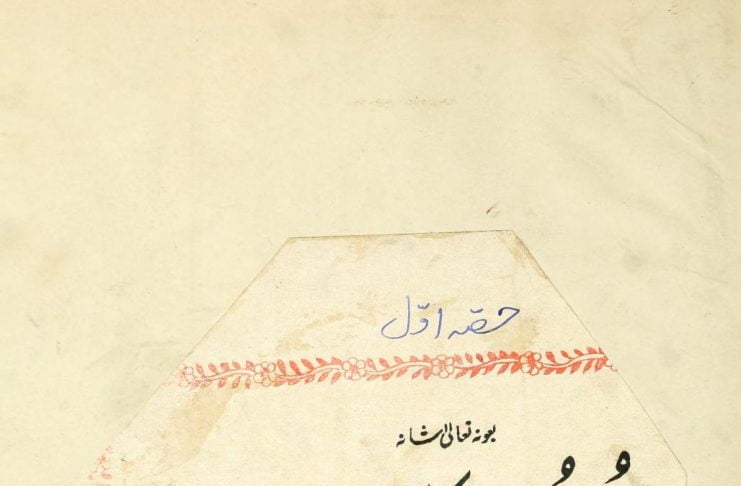 حصّہ اوّل
بعونہ تعالیٰ شانہ